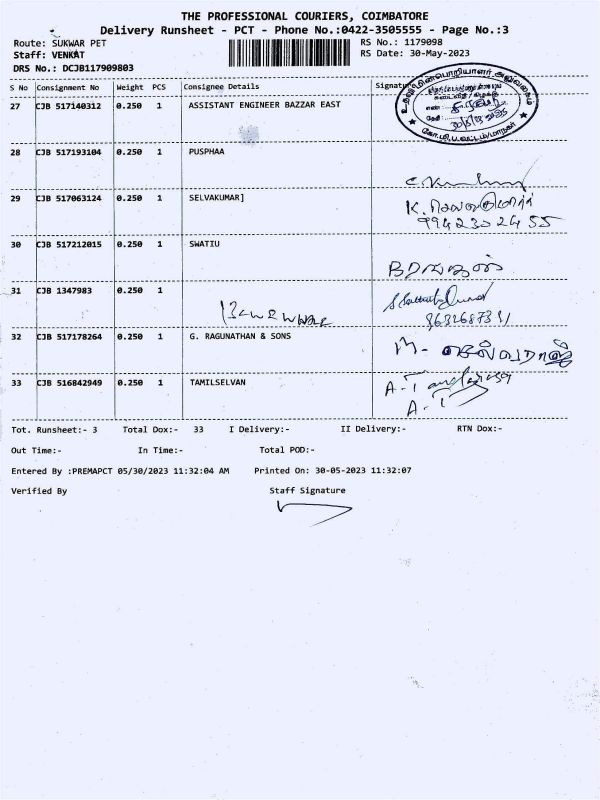 THE PROFESSIONAL COURIERS, COIMBATORE
Delivery Runsheet - PCT - Phone No.:0422-3505555 - Page No.:3
Route: SUKWAR PET RS No.: 1179098
Staff: VENKAT RS Date: 30-May-2023
DRS No.: DCJB117909803
S No Consignment No Weight PCS Consignee Details Signature
27 CJB 517140312 0.250 1 ASSISTANT ENGINEER BAZZAR EAST
28 CJB 517193104 0.250 1 PUSPHAA
29 CJB 517063124 0.250 1 SELVAKUMAR] K. செல்வகுமார்
9942302455
30 CJB 517212015 0.250 1 SWATIU
31 CJB 1347983 0.250 1
32 CJB 517178264 0.250 1 G. RAGUNATHAN & SONS M- செல்வராஜ்
33 CJB 516842949 0.250 1 TAMILSELVAN
Tot. Runsheet:- 3 Total Dox:- 33 I Delivery:- II Delivery:- RTN Dox:-
Out Time:- In Time:- Total POD:-
Entered By :PREMAPCT 05/30/2023 11:32:04 AM Printed On: 30-05-2023 11:32:07
Verified By Staff Signature